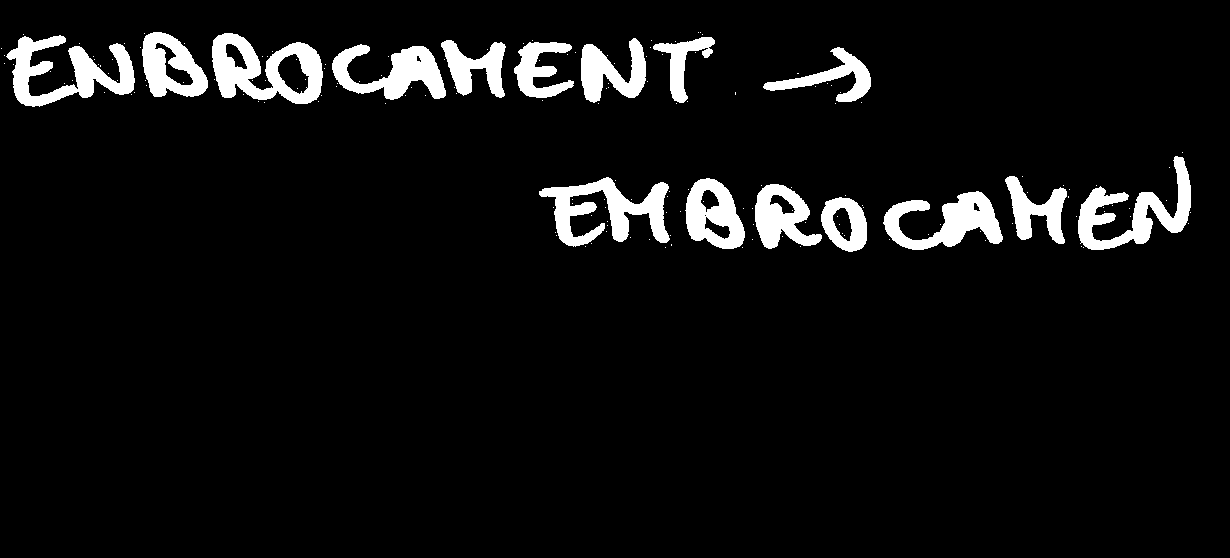 ENBROCAMENT →
EMBROCAMEN